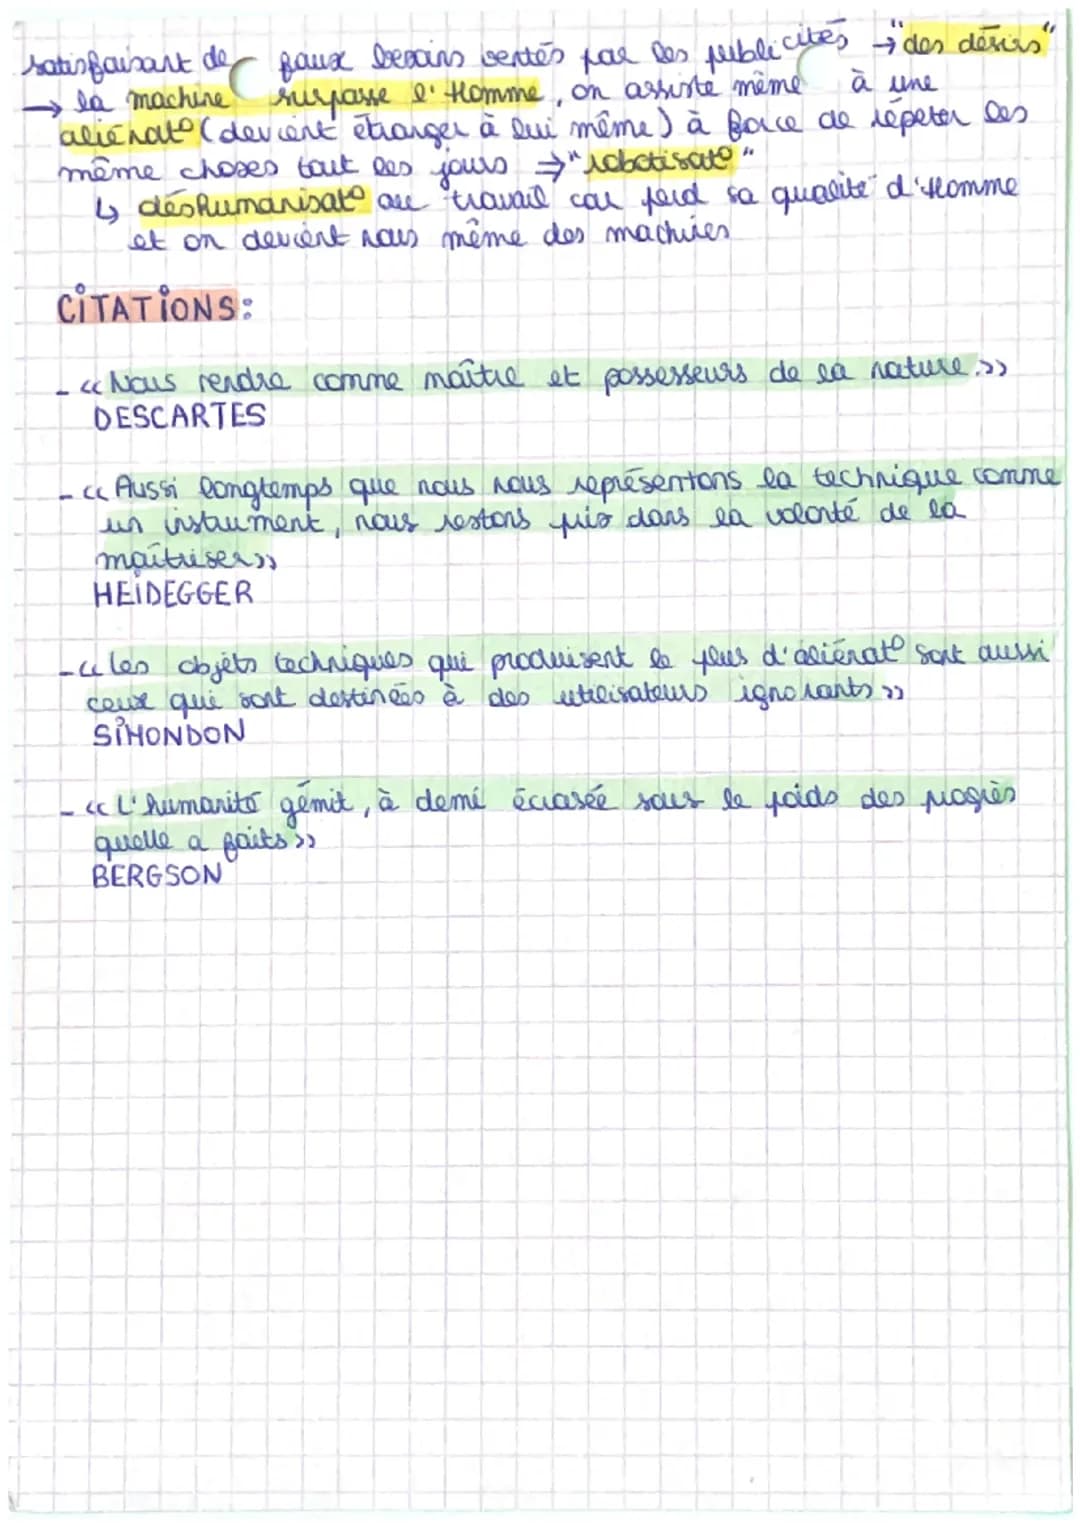 satisfaisant de faux besoins ventés par les publicités → "des désirs"
→ la machine surpasse l'Homme, on assiste même à une
aliénat° (devient étranger à lui même) à force de répeter les
même choses tout les jours ⇒ "robotisat°"
↳ déshumanisat° au travail car perd sa qualité d'Homme
et on devient nous même des machines
CITATIONS:
- « Nous rendre comme maître et possesseurs de la nature.»
DESCARTES
- « Aussi longtemps que nous nous représentons la technique comme
un instrument, nous restons pris dans la volonté de la
maîtriser»
HEIDEGGER
- « les objets techniques qui produisent le plus d'aliénat° sont aussi
ceux qui sont destinées à des utilisateurs ignorants »
SIMONDON
- « L'humanité gémit, à demi écrasée sous le poids des progrès
quelle a faits »
BERGSON